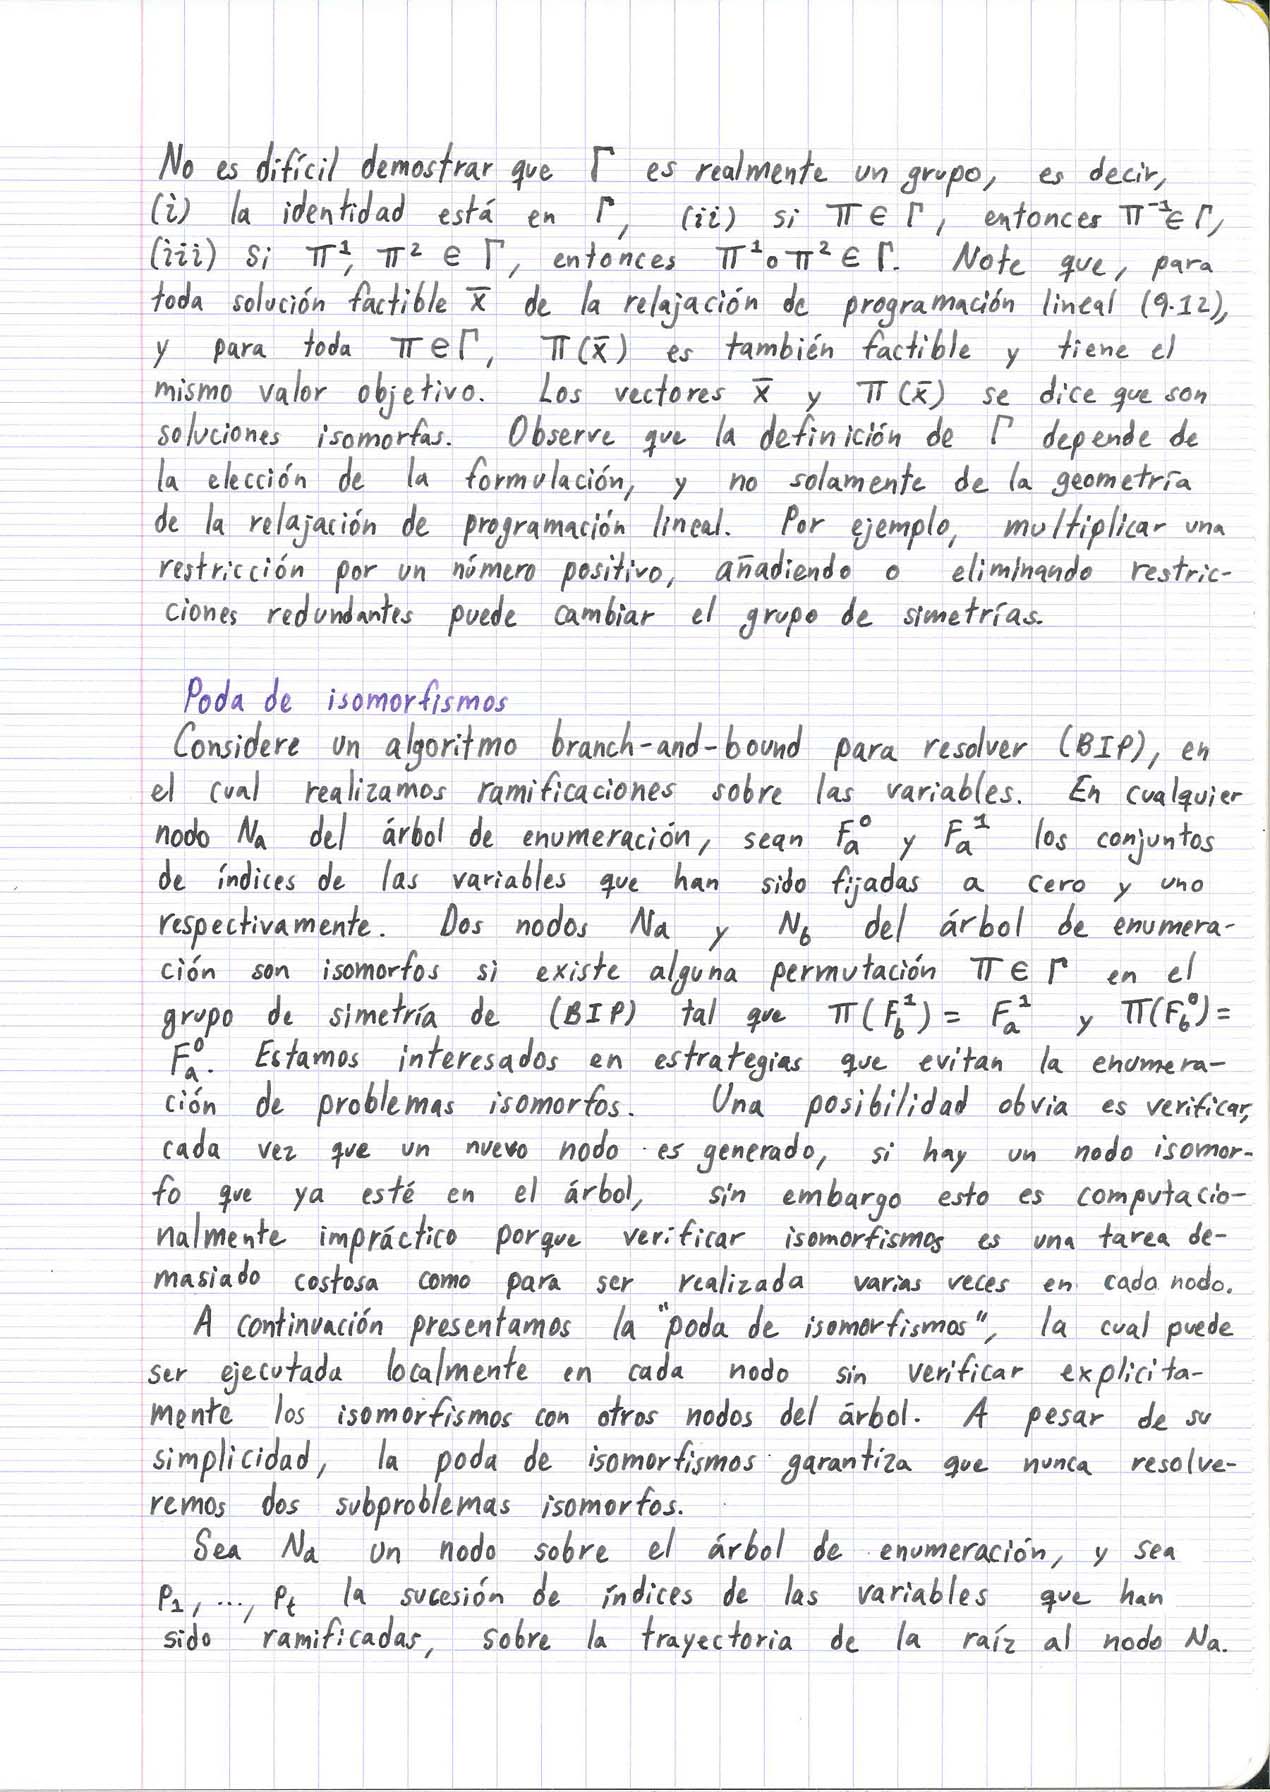 No es difícil demostrar que Γ es realmente un grupo, es decir,
(i) la identidad está en Γ, (ii) si π ∈ Γ, entonces π⁻¹ ∈ Γ,
(iii) Si π¹, π² ∈ Γ, entonces π¹∘π² ∈ Γ. Note que, para
toda solución factible x̄ de la relajación de programación lineal (9.12),
y para toda π ∈ Γ, π(x̄) es también factible y tiene el
mismo valor objetivo. Los vectores x̄ y π(x̄) se dice que son
soluciones isomorfas. Observe que la definición de Γ depende de
la elección de la formulación, y no solamente de la geometría
de la relajación de programación lineal. Por ejemplo, multiplicar una
restricción por un número positivo, añadiendo o eliminando restric-
ciones redundantes puede cambiar el grupo de simetrías.
Poda de isomorfismos
Considere un algoritmo branch-and-bound para resolver (BIP), en
el cual realizamos ramificaciones sobre las variables. En cualquier
nodo Na del árbol de enumeración, sean Fₐ⁰ y Fₐ¹ los conjuntos
de índices de las variables que han sido fijadas a cero y uno
respectivamente. Dos nodos Na y N_b del árbol de enumera-
ción son isomorfos si existe alguna permutación π ∈ Γ en el
grupo de simetría de (BIP) tal que π(F_b¹) = Fₐ¹ y π(F_b⁰) =
Fₐ⁰. Estamos interesados en estrategias que evitan la enumera-
ción de problemas isomorfos. Una posibilidad obvia es verificar,
cada vez que un nuevo nodo es generado, si hay un nodo isomor-
fo que ya esté en el árbol, sin embargo esto es computacio-
nalmente impráctico porque verificar isomorfismos es una tarea de-
masiado costosa como para ser realizada varias veces en cada nodo.
A continuación presentamos la "poda de isomorfismos", la cual puede
ser ejecutada localmente en cada nodo sin verificar explicita-
mente los isomorfismos con otros nodos del árbol. A pesar de su
simplicidad, la poda de isomorfismos garantiza que nunca resolve-
remos dos subproblemas isomorfos.
Sea Na un nodo sobre el árbol de enumeración, y sea
P₁, ..., Pₜ la sucesión de índices de las variables que han
sido ramificadas, sobre la trayectoria de la raíz al nodo Na.